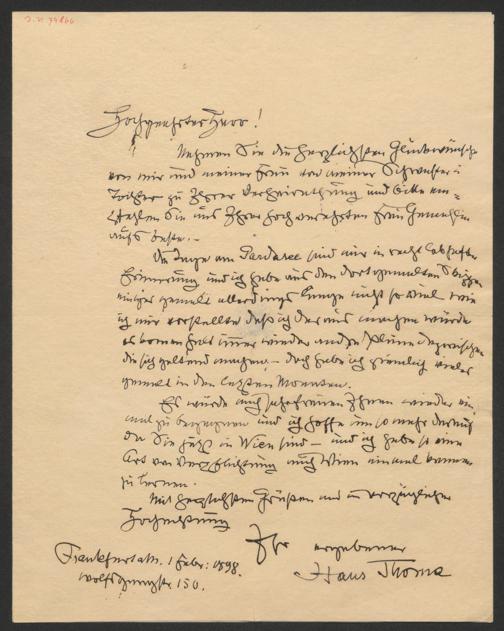 J. N. 79866
Hochgeehrter Herr!
Nehmen Sie die herzlichsten Glückwünsche
von mir und meiner Frau und meiner Schwester u
Tochter zu Ihrer Verheirathung und bitte em=
pfehlen Sie uns Ihrer hochverehrten Frau Gemahlin
aufs beste. –
Die Tage am Gardasee sind mir in recht lebhafter
Erinnerung und ich habe aus den dort gemalten Skizzen
einiges gemalt allerdings lange nicht so viel wie
ich mir vorstellte daß ich daraus machen würde
es kommen halt immer wieder andre Pläne dazwischen
die sich geltend machen. – doch habe ich ziemlich vieles
gemalt in den letzten Monaten.
Es würde mich sehr freuen Ihnen wieder ein
mal zu begegnen und ich hoffe um so mehr darauf
da Sie jetzt in Wien sind – und ich habe so eine
Art von Verpflichtung auch Wien einmal kennen
zu lernen.
Mit herzlichsten Grüßen und in vorzüglicher
Hochachtung
Ihr ergebener
Hans Thoma
Frankfurt a/M. 1 Febr: 1898.
Wolfsgangstr. 150.